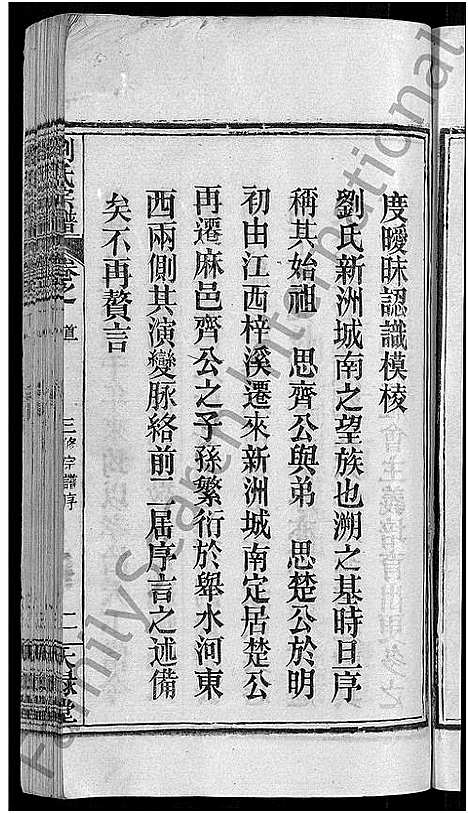 度曖昧認識模棱
劉氏新洲城南之望族也溯之基時旦序
稱其始祖　思齊公與弟　思楚公於明
初由江西梓溪遷來新洲城南定居楚公
再遷麻邑齊公之子孫繁衍於舉水河東
西兩側其演變脉絡前二居序言之述備
矣不再贅言
劉氏宗譜
卷之
道
三修宗譜序
二
天祿堂
FamilySearch International